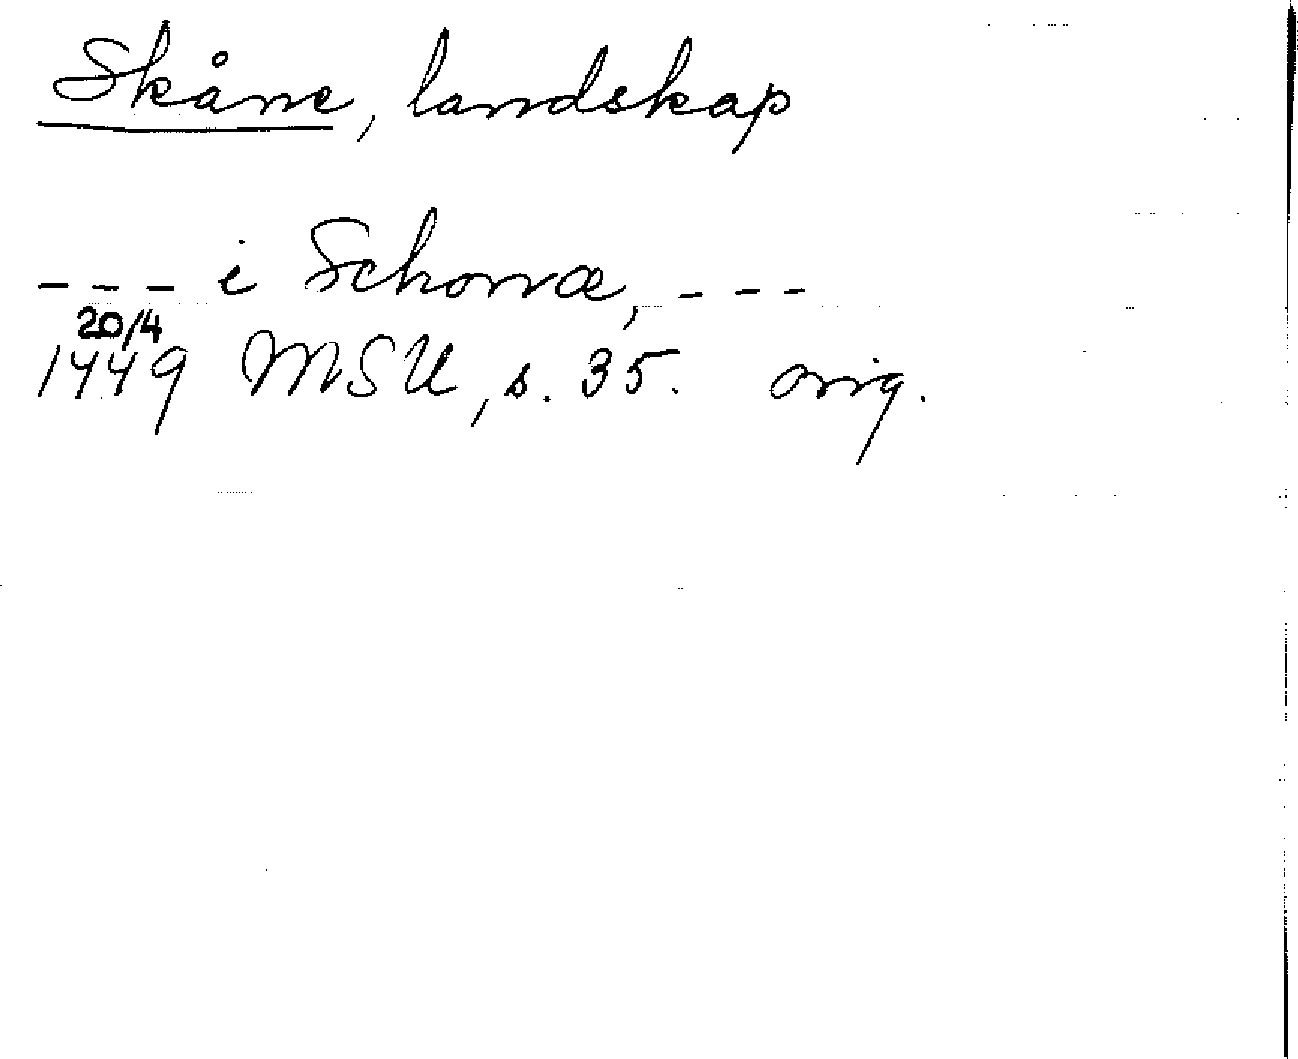 Skåne, landskap
--- i Schonæ, ---
20/4
1449 MSU, s. 35. orig.